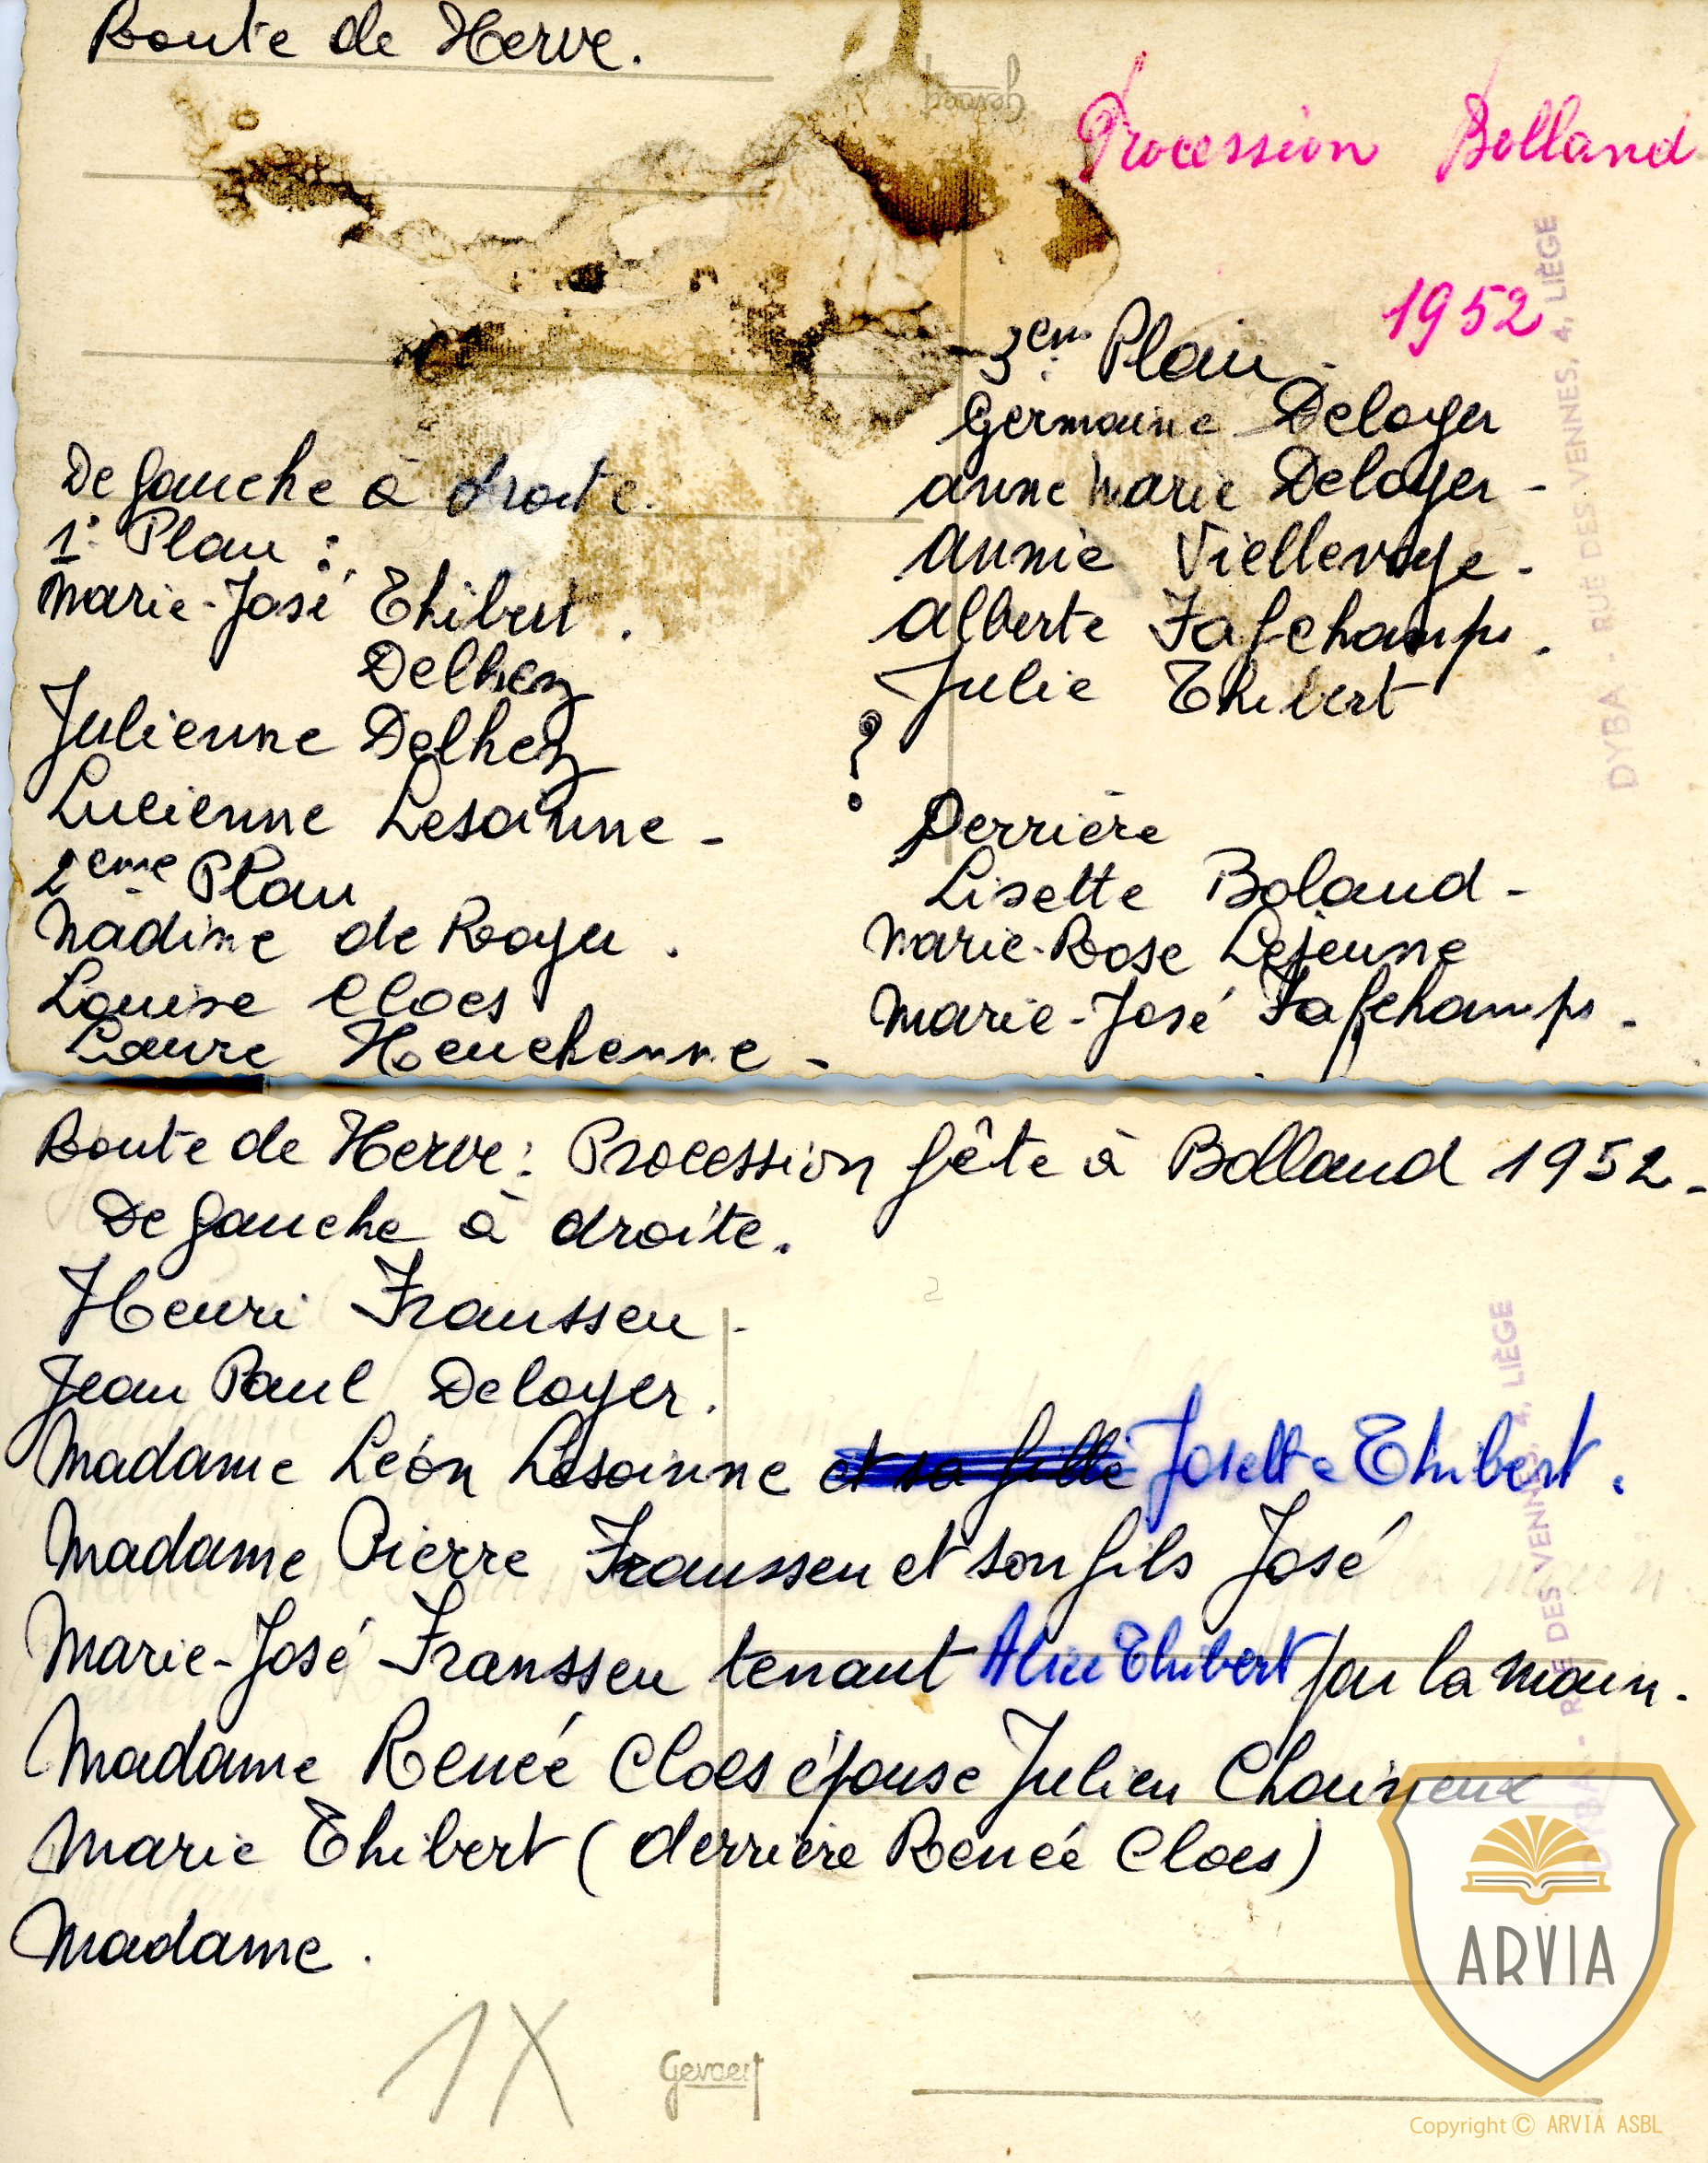 Route de Herve.
Gevaert
Procession Bolland
1952
De gauche à droite.
1° Plan :
Marie-José Thibert.
Delhez
Julienne Delhez
Lucienne Lesoinne -
2eme Plan
Nadine de Rooyer.
Louise Cloes
Laure Heuchenne -
3em Plan -
Germaine Deloyer
Anne Marie Deloyer -
Annie Viellevoye -
Alberte Fafchamps.
Julie Thibert
?
Derrière
Lisette Boland -
Marie-Rose Lejeune
Marie-José Fafchamps -
DYBA - RUE DES VENNES, 4, LIÈGE
Route de Herve : Procession fête à Bolland 1952 -
De gauche à droite.
Henri Franssen -
Jean Paul Deloyer.
Madame Léon Lesoinne et sa fille Josette Thibert.
Madame Pierre Franssen et son fils José
Marie-José Franssen tenant Alice Thibert par la main.
Madame Renée Cloes épouse Julien Chaineux
Marie Thibert (derrière Renée Cloes)
Madame.
1X
Gevaert
DYBA - RUE DES VENNES, 4, LIÈGE
ARVIA
Copyright © ARVIA ASBL